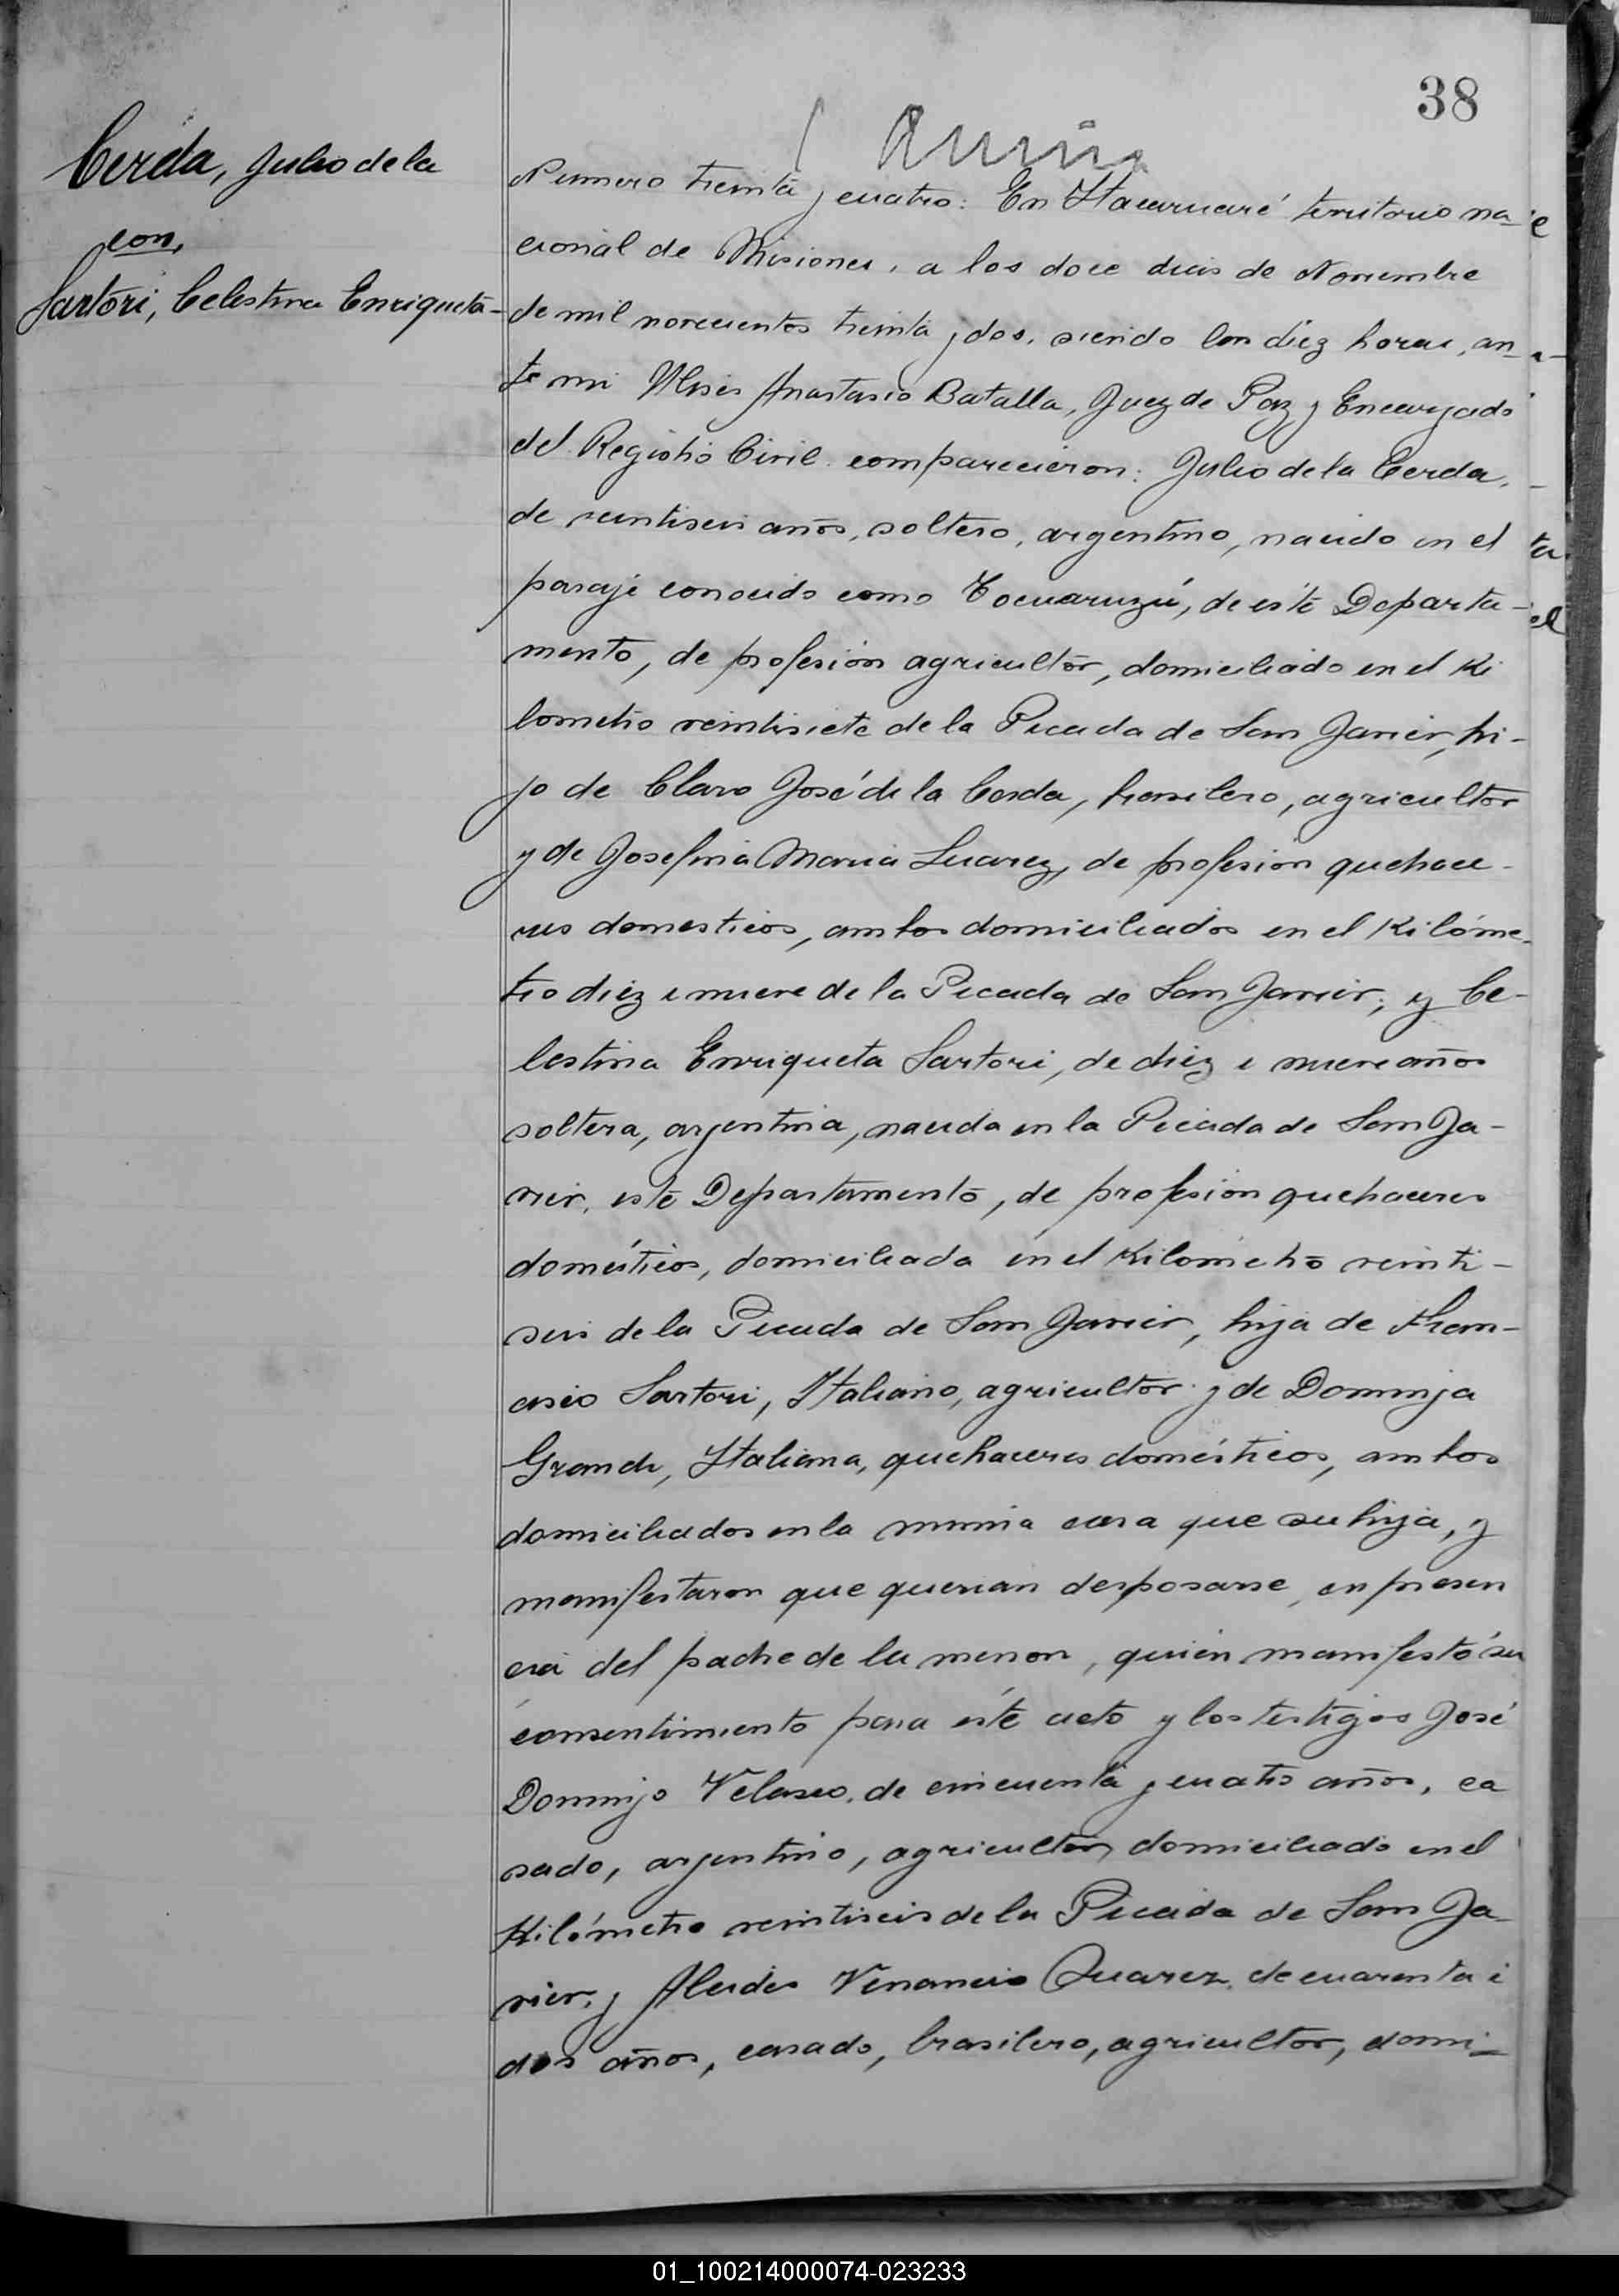 38
Cerda, Julio de la
con
Sartori, Celestina Enriqueta
Numero treinta y cuatro: En Itacaruaré territorio na-
cional de Misiones, a los doce dias de Noviembre
de mil novecientos treinta y dos, siendo las diez horas, an-
te mi Ulises Anastasio Batalla, Juez de Paz y Encargado
del Registro Civil comparecieron: Julio de la Cerda,
de veintiseis años, soltero, argentino, nacido en el
paraje conocido como Tocuaruzú, de éste Departa-
mento, de profesión agricultor, domiciliado en el Ki
lometro veintisiete de la Picada de San Javier, hi-
jo de Claro José de la Cerda, brasilero, agricultor
y de Josefina Maria Suarez, de profesion quehace-
res domesticos, ambos domiciliados en el Kilóme-
tro diez e nueve de la Picada de San Javier; y Ce-
lestina Enriqueta Sartori, de diez e nueve años
soltera, argentina, nacida en la Picada de San Ja-
vier, este Departamento, de profesion quehaceres
domésticos, domiciliada en el Kilómetro veinti-
seis de la Picada de San Javier, hija de Fran-
cisco Sartori, Italiano, agricultor y de Dominga
Grande, Italiana, quehaceres domésticos, ambos
domiciliados en la misma casa que su hija, y
manifestaron que querian desposarse, en presen
cia del padre de la menor, quién manifestó su
consentimiento para éste acto y los testigos José
Domingo Velasco, de cincuenta y cuatro años, ca
sado, argentino, agricultor, domiciliado en el
Kilómetro veintiseis de la Picada de San Ja
vier, y Alcides Venancio Quarez, de cuarenta i
dos años, casado, brasilero, agricultor, domi-
01_100214000074-023233